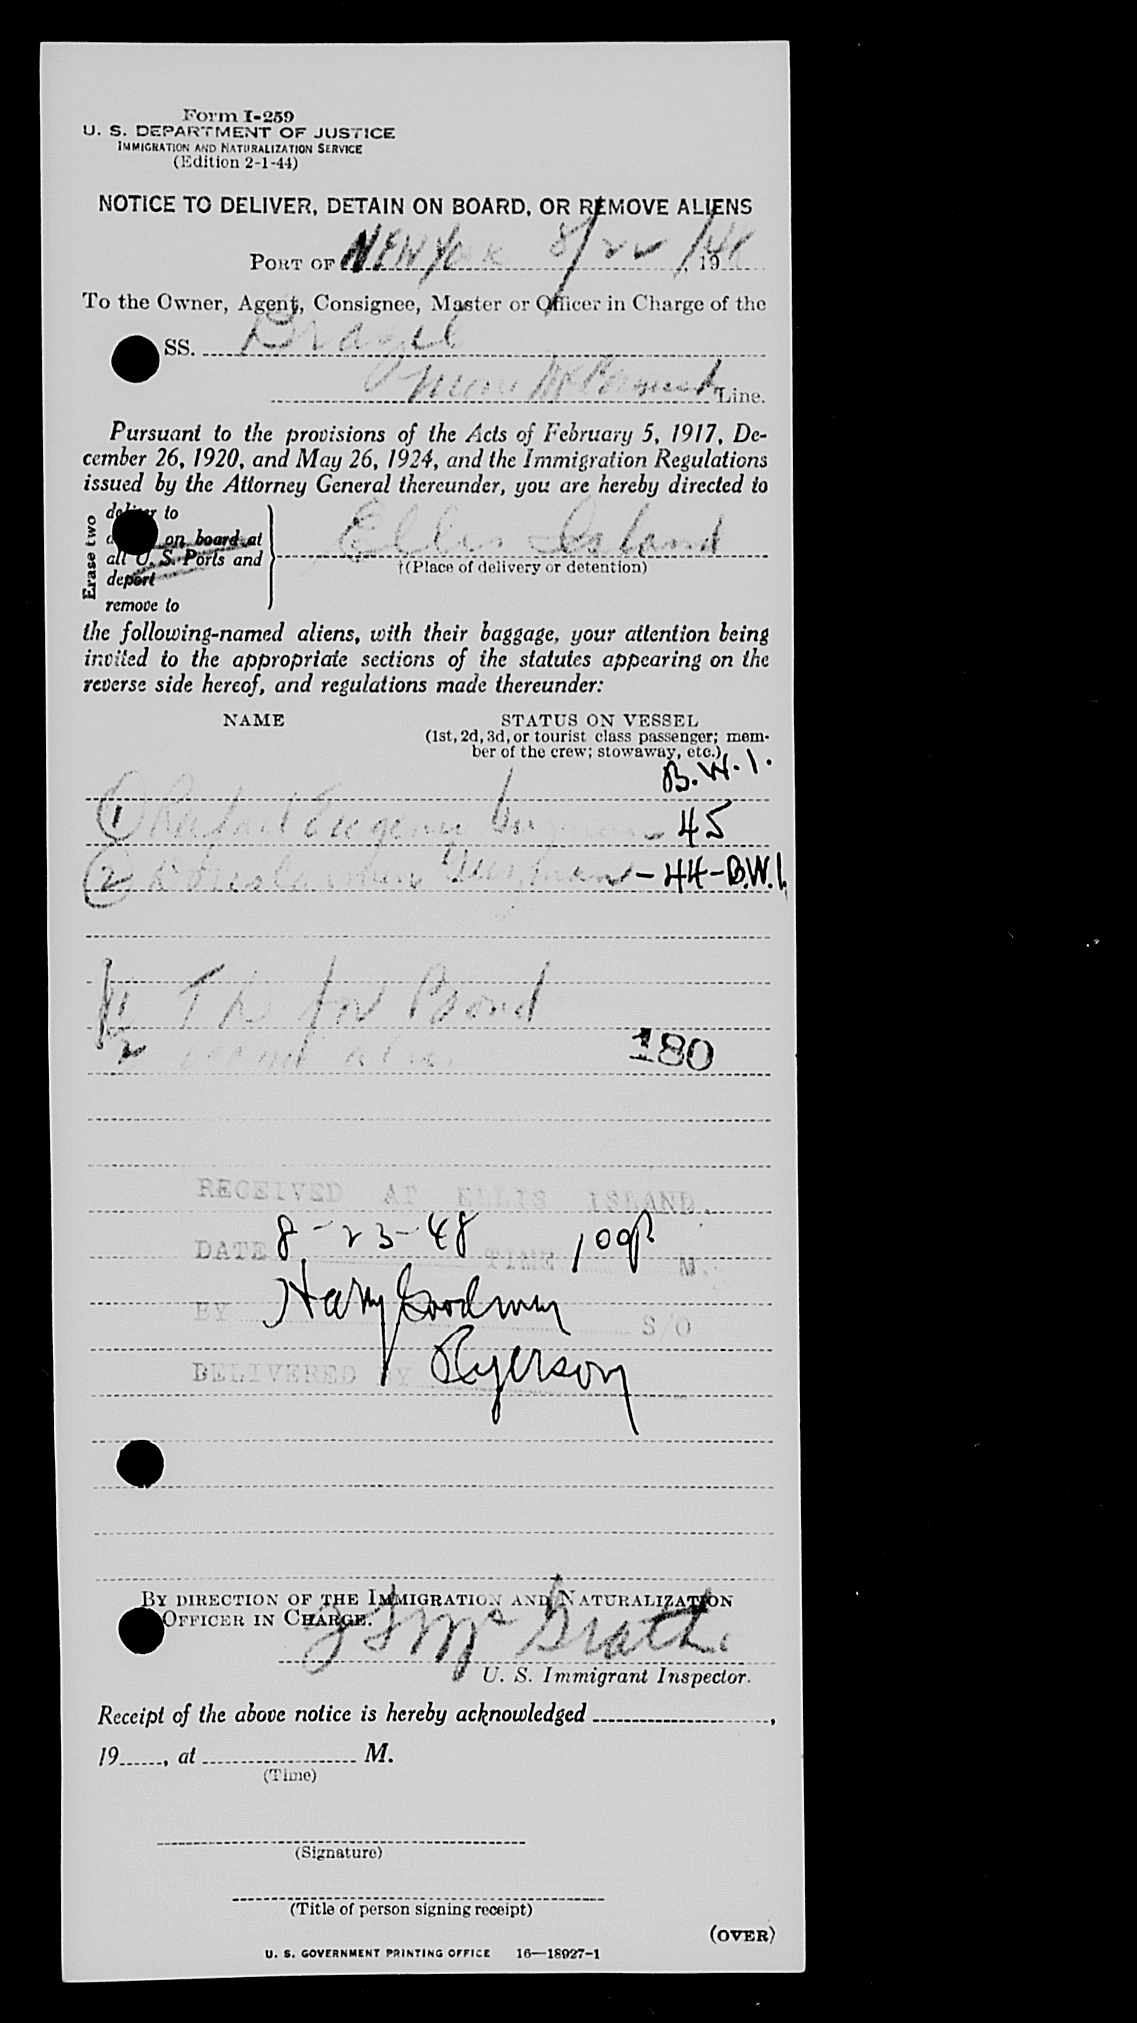 Form I-259
U. S. DEPARTMENT OF JUSTICE
IMMIGRATION AND NATURALIZATION SERVICE
(Edition 2-1-44)
NOTICE TO DELIVER, DETAIN ON BOARD, OR REMOVE ALIENS
PORT OF NEW YORK 8/22/48, 19
To the Owner, Agent, Consignee, Master or Officer in Charge of the
SS. Brazil
Moore McCormack Line.
Pursuant to the provisions of the Acts of February 5, 1917, De-
cember 26, 1920, and May 26, 1924, and the Immigration Regulations
issued by the Attorney General thereunder, you are hereby directed to
Erase two
deliver to
on board at
all U. S. Ports and
deport
remove to
Ellis Island
†(Place of delivery or detention)
the following-named aliens, with their baggage, your attention being
invited to the appropriate sections of the statutes appearing on the
reverse side hereof, and regulations made thereunder:
NAME STATUS ON VESSEL
(1st, 2d, 3d, or tourist class passenger; mem-
ber of the crew; stowaway, etc.)
B.W.I.
(1) Rafael Eugenio Guzman - 45
(2) Guzman - 44 - B.W.I.
1 for Bond
2
180
RECEIVED AT ELLIS ISLAND.
DATE 8-23-48 TIME 100P M.
BY Harry Goodman S/O
DELIVERED BY Ryerson
BY DIRECTION OF THE IMMIGRATION AND NATURALIZATION
OFFICER IN CHARGE.
McGrath
U. S. Immigrant Inspector.
Receipt of the above notice is hereby acknowledged ,
19 , at M.
(Time)
(Signature)
(Title of person signing receipt)
(OVER)
U. S. GOVERNMENT PRINTING OFFICE 16—18927-1